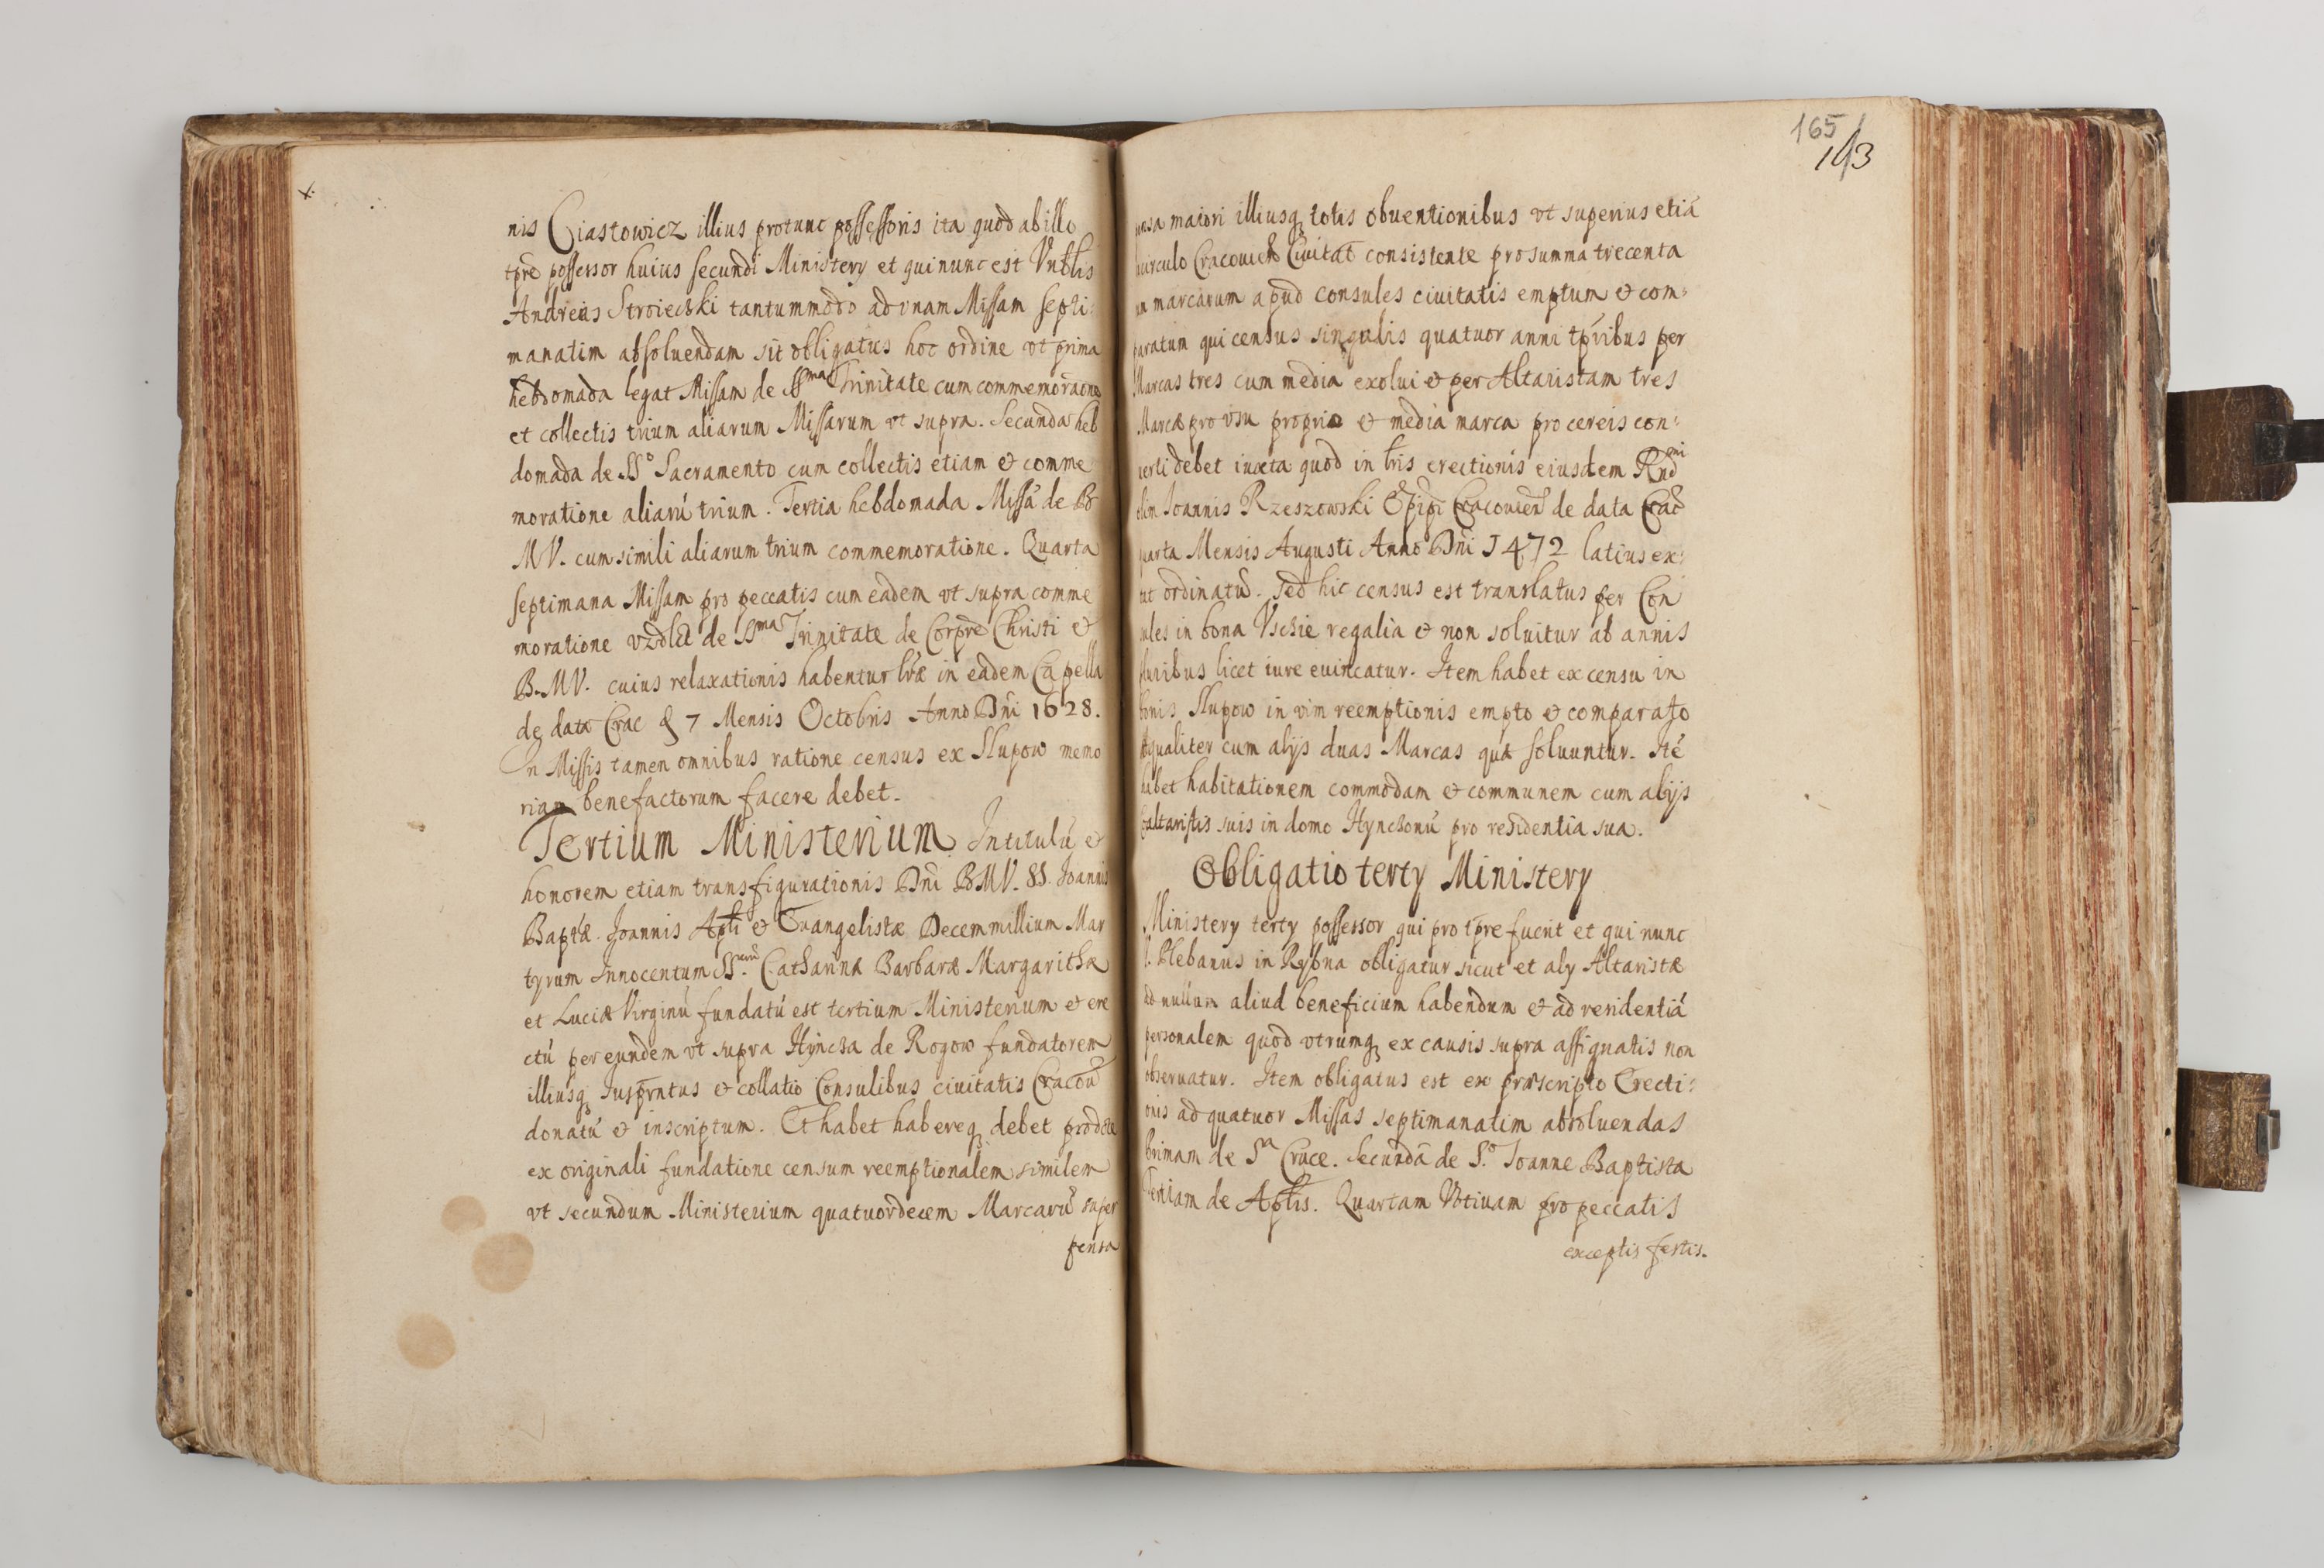 nis Ciastowicz illius protunc possessoris ita quod ab illo
tpre possessor huius secundi Ministery et qui nunc est Vnblis
Andreas Stroiecski tantummodo ad vnam Missam septi:
manatim absoluendam sit obligatus hoc ordine vt prima
hebdomada legat Missam de SSma Trinitate cum commemoraone
et collectis trium aliarum Missarum vt supra. Secunda heb
domada de SSo Sacramento cum collectis etiam & comme
moratione aliarú trium. Tertia hebdomada Missá de B
MV. cum simili aliarum trium commemoratione. Quarta
septimana Missam pro peccatis cum eadem vt supra comme
moratione vzdlct de SSma Trinitate de Corpre Christi &
B.MV. cuius relaxationis habentur lræ in eadem Capella
de data Crac 7 Mensis Octobris Anno Dni 1628.
In Missis tamen omnibus ratione census ex Slupow memo
riam benefactorum facere debet.
Tertium Ministerium Intitulú &
honorem etiam transfigurationis Dni BMV. SS. Joannis
Baptæ. Joannis Apli & Euangelistæ Decem millium Mar
tyrum Innocentum SSarū Catharinæ Barbaræ Margarithæ
et Luciæ Virginú fundatú est tertium Ministerium & ere
ctú per eundem vt supra Hynczka de Rogow fundatorem
illiusq Juspatrntus & collatio Consulibus ciuitatis Cracou
donatú & inscriptum. Et habet habereq debet prodcta
ex originali fundatione censum reemptionalem similem
vt secundum Ministerium quatuordecem Marcarú super
pensa
pensa maiori illiusq totis obuentionibus vt superius etiá
circulo Cracouien Ciuitat consistente pro summa trecenta
marcarum apud Consules ciuitatis emptum & com:
paratum qui census singulis quatuor anni tpribus per
Marcas tres cum media exolui & per Altaristam tres
Marcæ pro vsu proprio & media marca pro cereis con:
uerti debet iuxta quod in lris erectionis eiusdem Rndmi
olim Joannis Rzeszowski Epipi Cracouien de data Crac
quarta Mensis Augusti Anno Dni 1472 latius ex:
tat ordinatú. Sed hic census est translatus per Con
sules in bona Vscie regalia & non soluitur ab annis
pluribus licet iure euincatur. Item habet ex censu in
bonis Slupow in vim reemptionis empto & comparato
æqualiter cum alijs duas Marcas quæ soluuntur. Ité
habet habitationem commodam & communem cum alijs
Coaltaristis suis in domo Hynczkonú pro residentia sua.
Obligatio terty Ministery
Ministery terty possessor qui pro tpre fuerit et qui nunc
Plebanus in Rybna obligatur sicut et aly Altaristæ
ad nullum aliud beneficium habendum & ad residentiá
personalem quod vtrumq ex causis supra assignatis non
obseruatur. Item obligatus est ex præscripto Erecti:
onis ad quatuor Missas septimanatim absoluendas
Primam de Sa Cruce. Secundá de S.o Joanne Baptista
Tertiam de Aplis. Quartam Votiuam pro peccatis
exceptis festis.
165